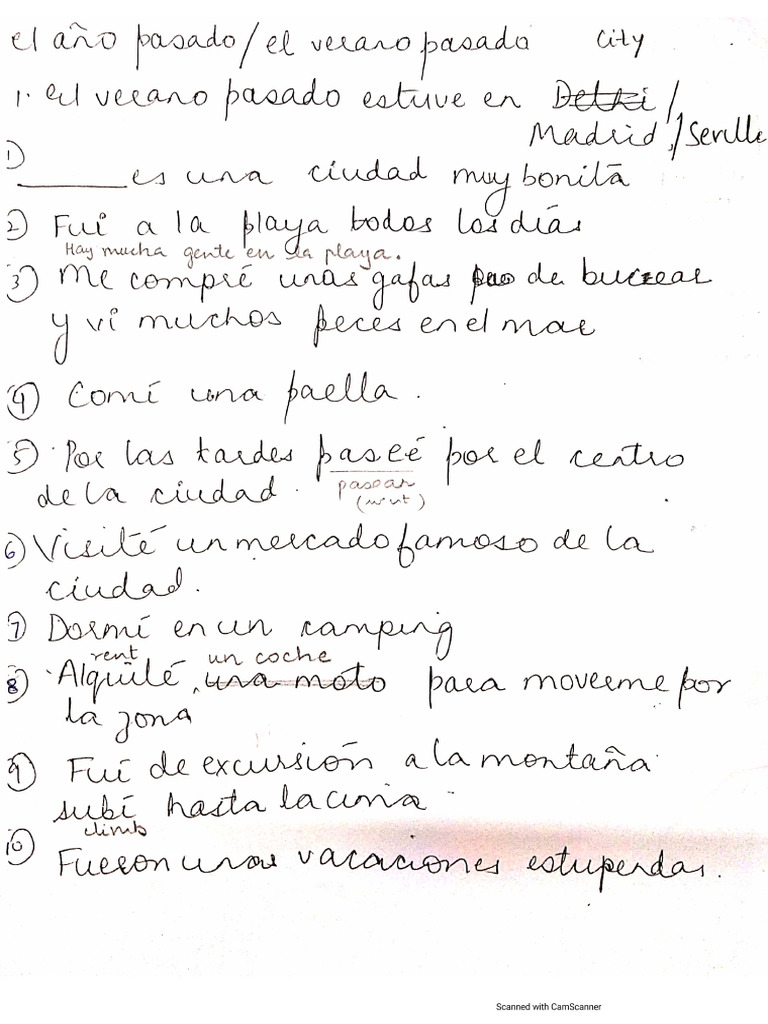 el año pasado/el verano pasado City
1. El verano pasado estuve en Delhi/
Madrid,/Seville
1) ______ es una ciudad muy bonita
2) Fui a la playa todos los días
Hay mucha gente en la playa.
3) Me compré unas gafas de bucear
y vi muchos peces en el mar
4) Comí una paella.
5) Por las tardes paseé por el centro
pasear
de la ciudad.
6) Visité un mercado famoso de la
ciudad.
7) Dormí en un camping
rent un coche
8) Alquilé, una moto para moverme por
la zona
9) Fui de excursión a la montaña
subí hasta la cima
climb
10)
Fueron unas vacaciones estupendas.
Scanned with CamScanner